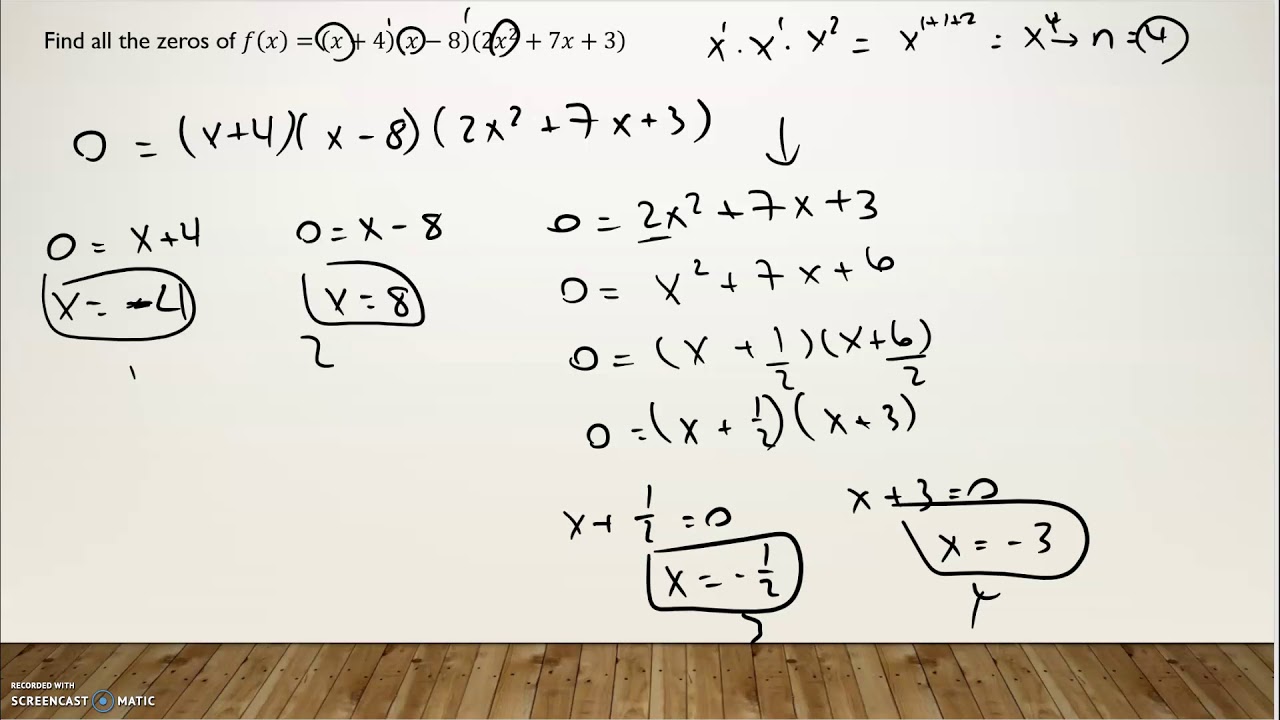 Find all the zeros of f(x) = (x + 4)(x − 8)(2x² + 7x + 3)
1 1
x¹ · x¹ · x² = x¹⁺¹⁺² = x⁴ → n = 4
0 = (x+4)(x − 8)(2x² + 7x + 3)
↓
0 = x+4
x = −4
1
0 = x − 8
x = 8
2
0 = 2x² + 7x + 3
0 = x² + 7x + 6
0 = (x + 1/2)(x + 6/2)
0 = (x + 1/2)(x + 3)
x + 1/2 = 0
x = − 1/2
3
x + 3 = 0
x = − 3
4
RECORDED WITH
SCREENCAST MATIC